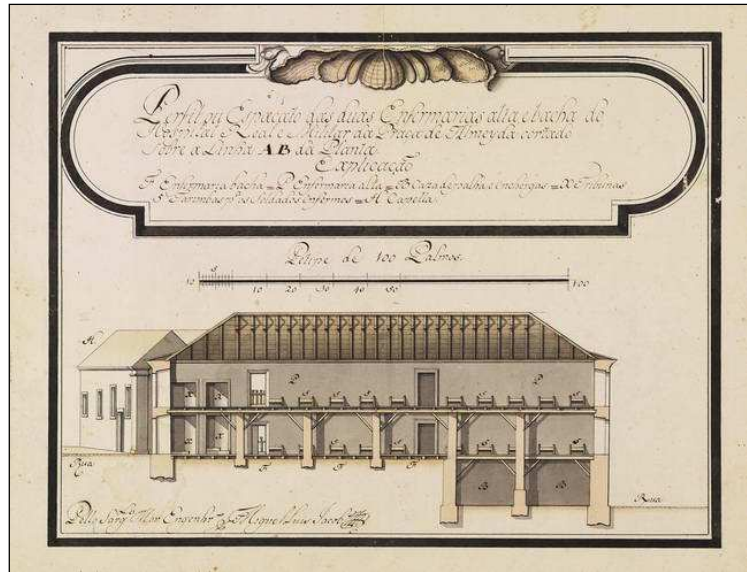 Perfil ou Espacato das duas Enfermarias alta e bacha do
Hospital Real e Militar da Praça de Almeyda cortado
Sobre a Linha AB da Planta
Explicação
F Enfermaria bacha = P Enfermaria alta = B Caza de palha e enchergas = X Tribunas
S Tarimbas pª os Soldados Enfermos = H Capella
Petipe de 100 Palmos
10 5 10 20 30 40 50 100
H
P P
X X S S S S S S S S
X X S S S S S S S S
Rua
F F F
B B
Rua
Pello Sargto Mor Engenhro Miguel Luis Jacob